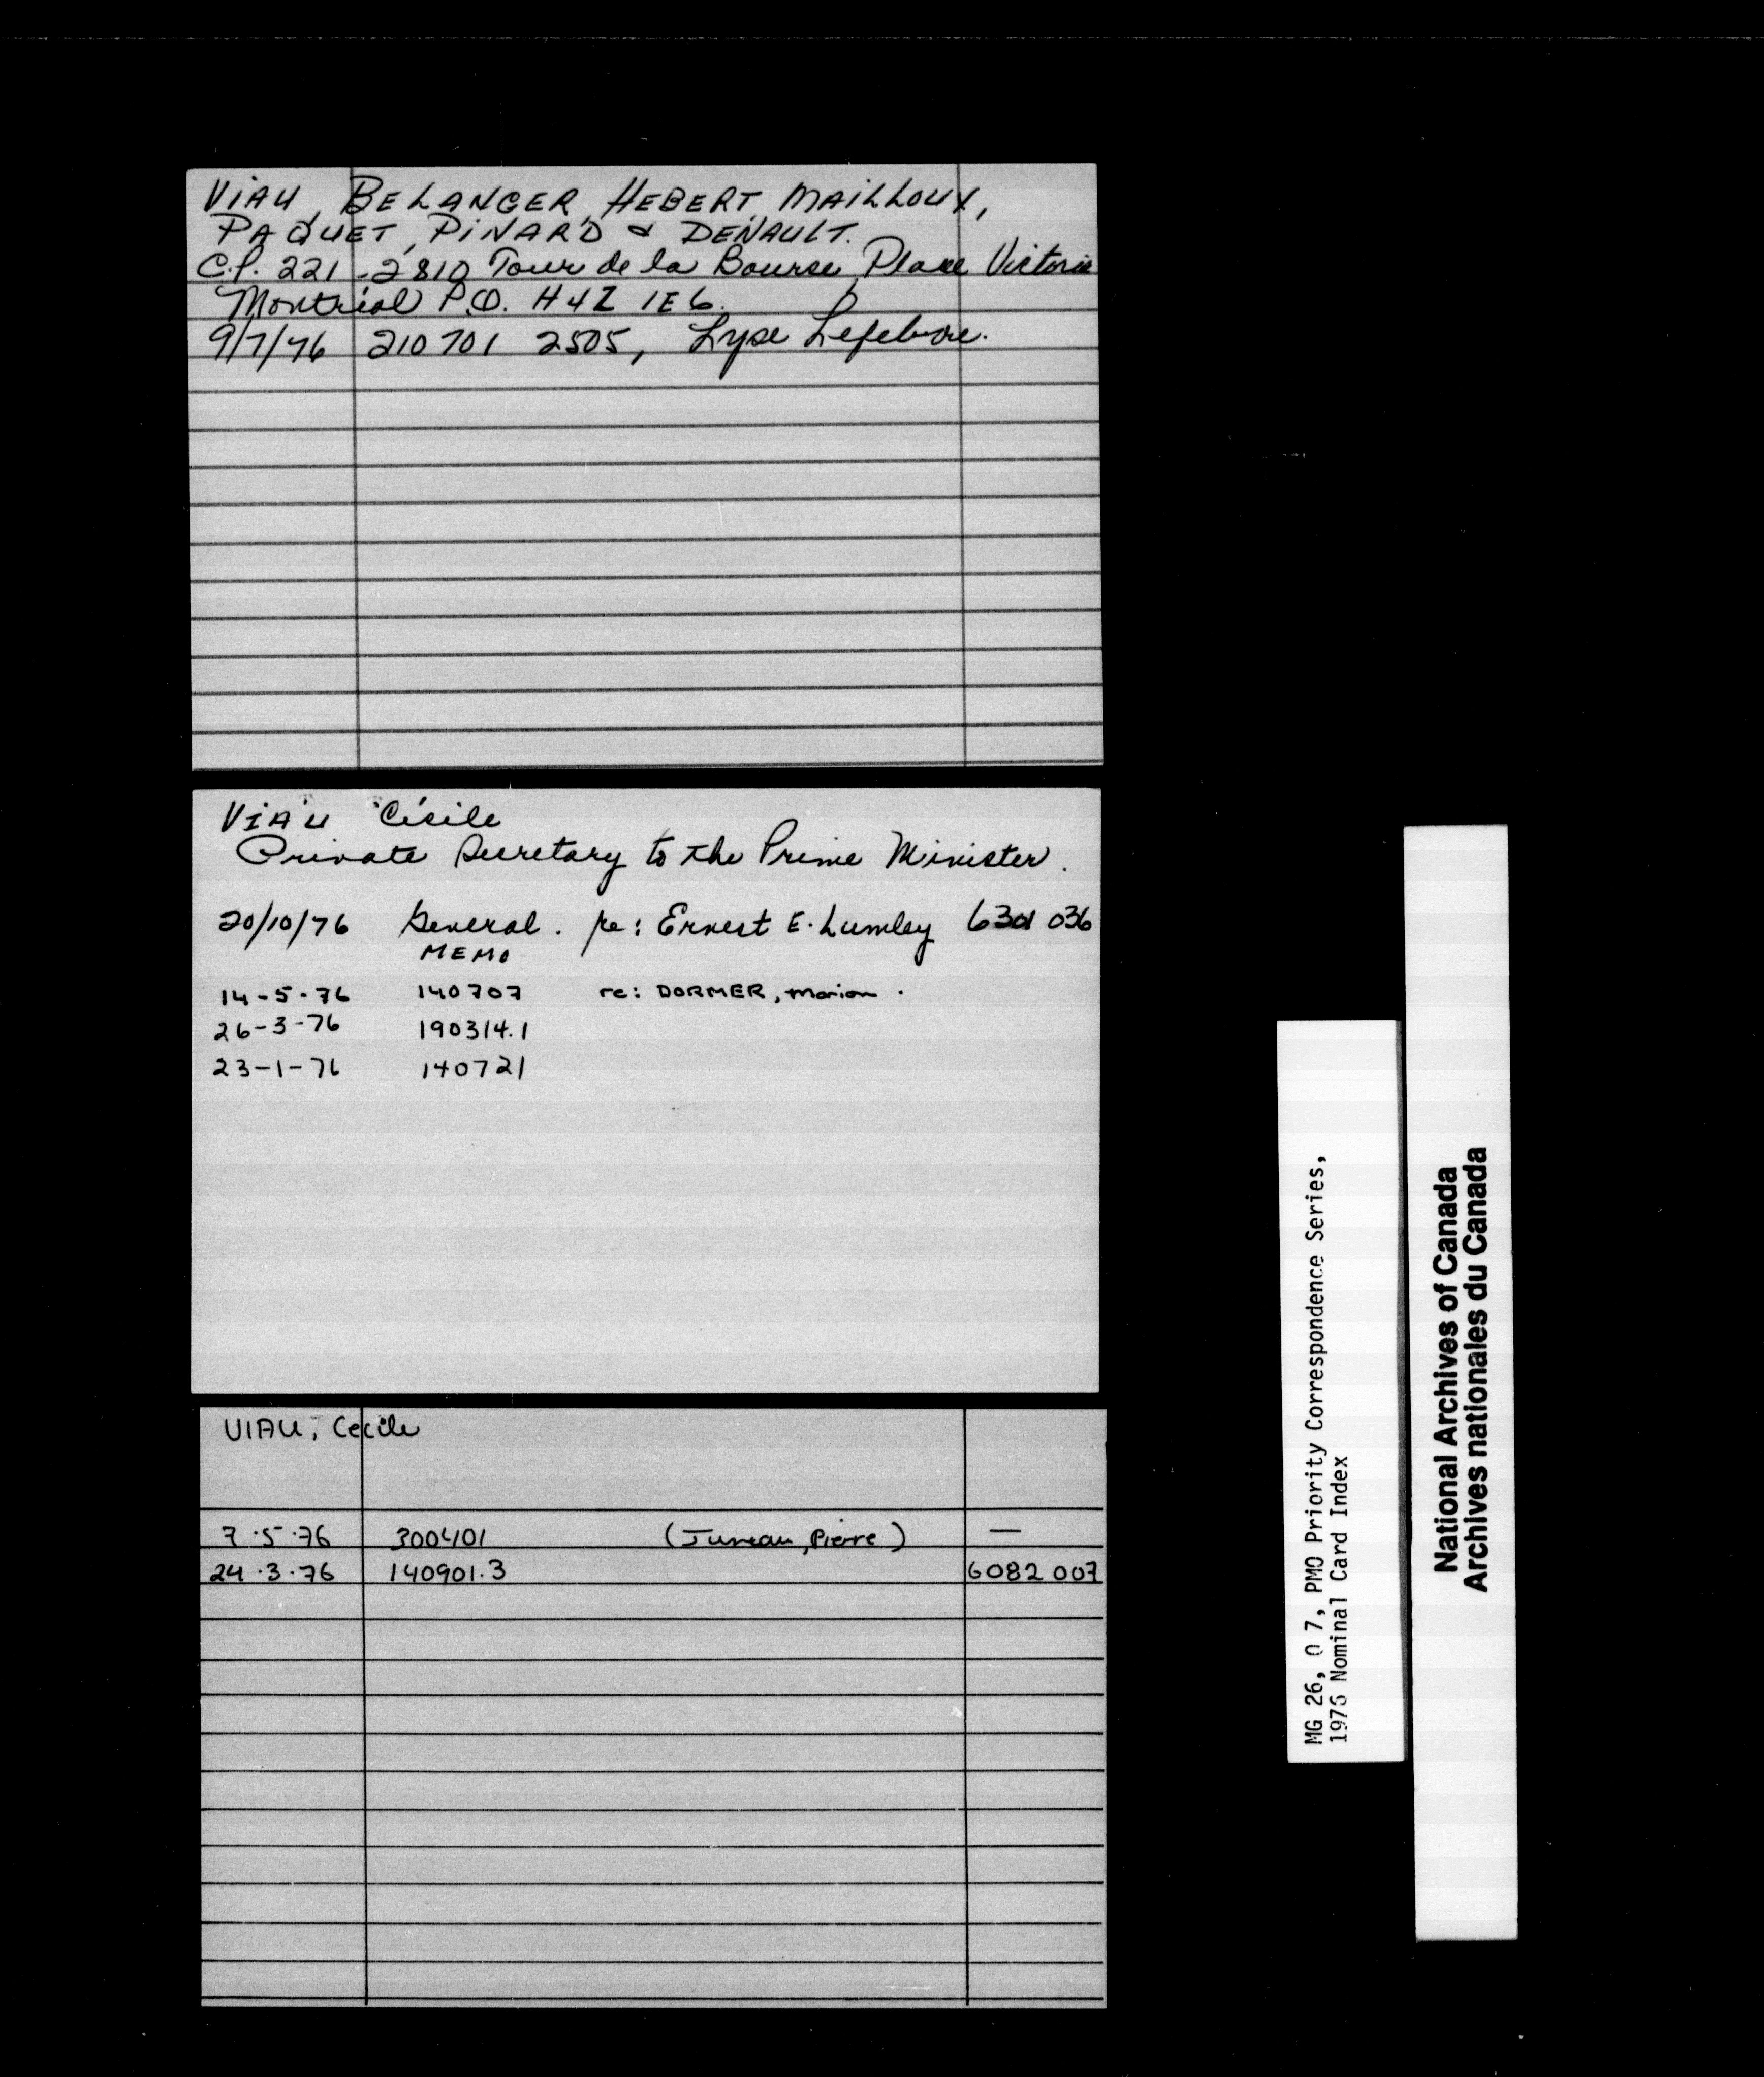 VIAU, BELANGER, HEBERT, MAILLOUX,
PAQUET, PINARD & DENAULT.
C.P. 221 - 2810 Tour de la Bourse, Place Victoria
Montréal P.Q. H4Z 1E6.
9/7/76 210701 2505, Lyse Lefebvre.
VIAU Cécile
Private Secretary to the Prime Minister.
20/10/76 General. re: Ernest E. Lumley 036
MEMO
14-5-76 140707 re: DORMER, Marion.
26-3-76 190314.1
23-1-76 140721
VIAU, Cecile
7.5.76 300401 (Juneau, Pierre) —
24.3.76 140901.3 6082 007
MG 26, O 7, PMO Priority Correspondence Series,
1976 Nominal Card Index
National Archives of Canada
Archives nationales du Canada